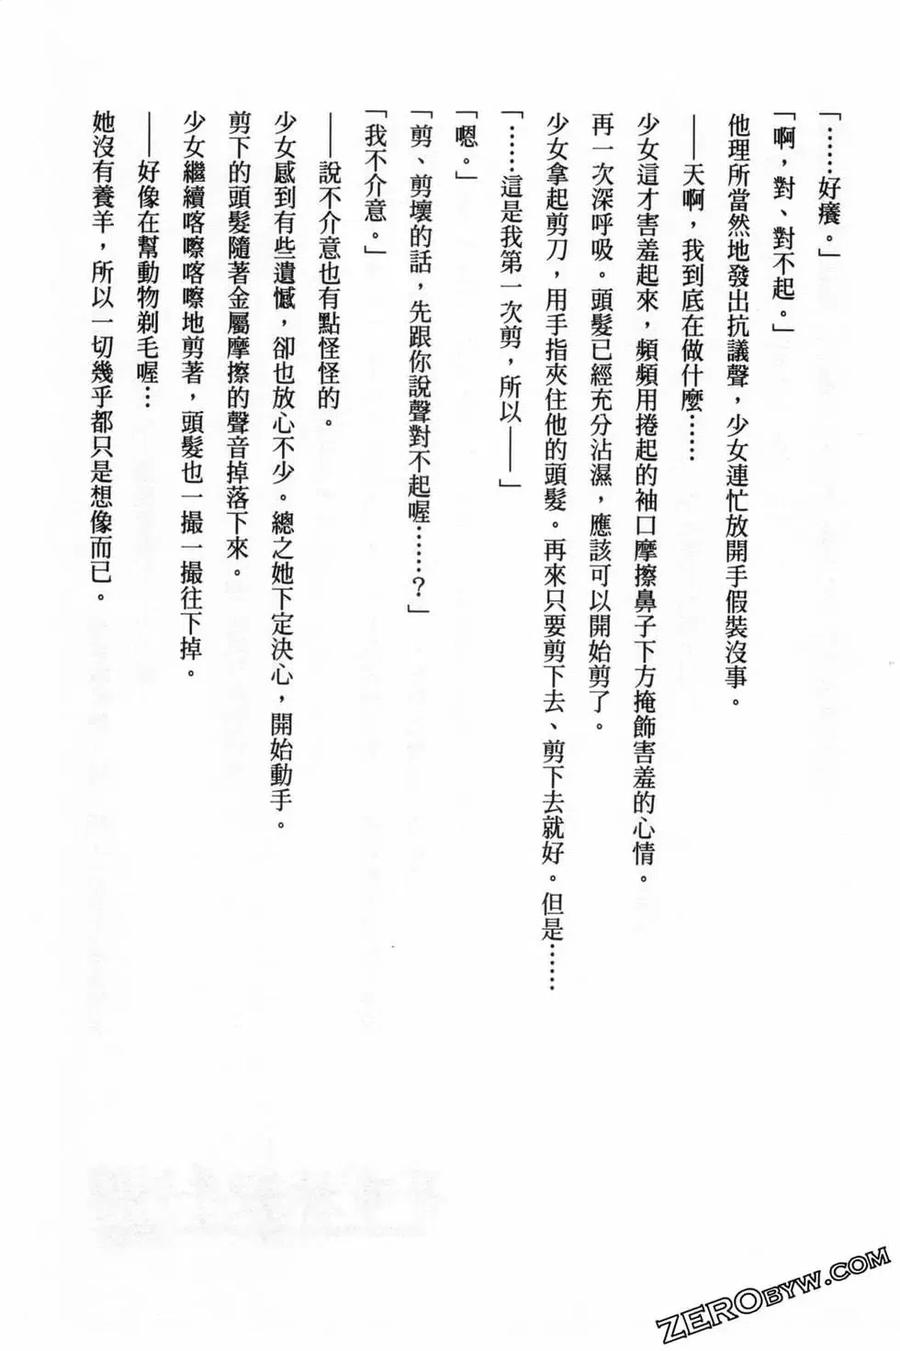 「……好癢。」
「啊，對、對不起。」
他理所當然地發出抗議聲，少女連忙放開手假裝沒事。
——天啊，我到底在做什麼……
少女這才害羞起來，頻頻用捲起的袖口摩擦鼻子下方掩飾害羞的心情。
再一次深呼吸。頭髮已經充分沾濕，應該可以開始剪了。
少女拿起剪刀，用手指夾住他的頭髮。再來只要剪下去、剪下去就好。但是……
「……這是我第一次剪，所以——」
「嗯。」
「剪、剪壞的話，先跟你說聲對不起喔……？」
「我不介意。」
——說不介意也有點怪怪的。
少女感到有些遺憾，卻也放心不少。總之她下定決心，開始動手。
剪下的頭髮隨著金屬摩擦的聲音掉落下來。
少女繼續喀嚓喀嚓地剪著，頭髮也一撮一撮往下掉。
——好像在幫動物剃毛喔…
她沒有養羊，所以一切幾乎都只是想像而已。
ZEROBYW.COM